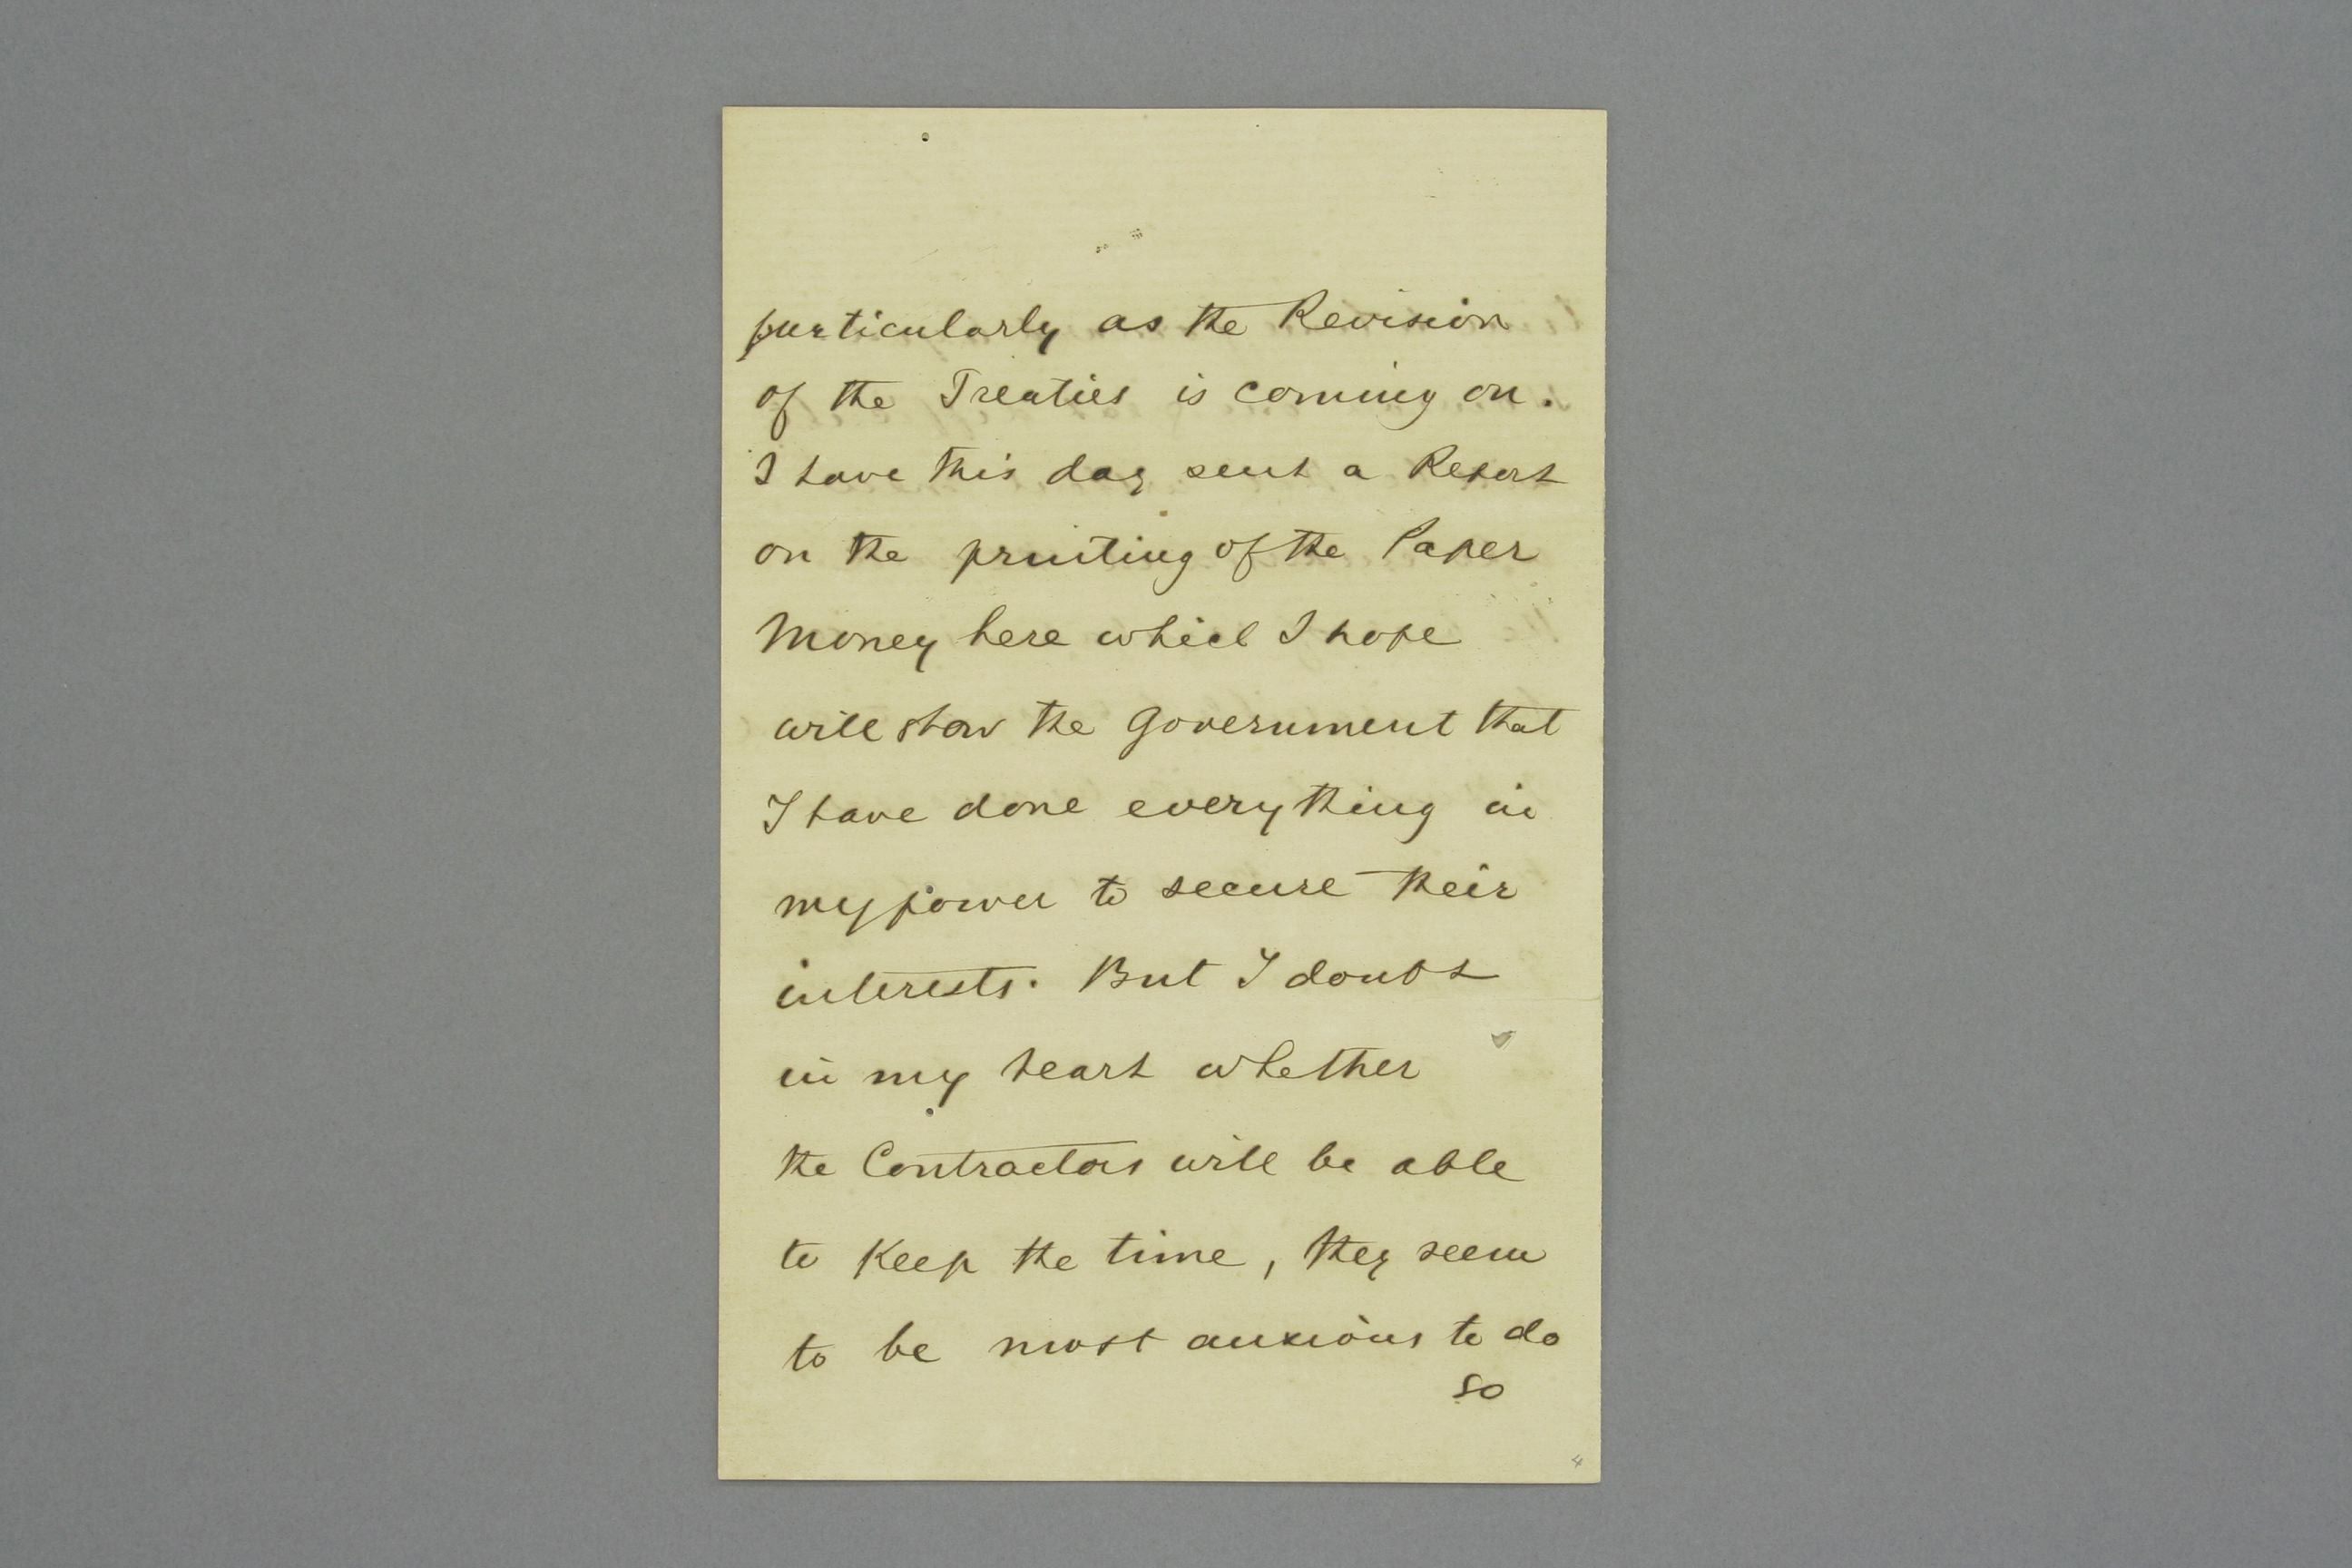 particularly as the Revision
of the Treaties is coming on.
I have this day sent a Report
on the printing of the Paper
Money here which I hope
will show the Government that
I have done everything in
my power to secure their
interests. But I doubt
in my heart whether
the Contractors will be able
to Keep the time, they seem
to be most anxious to do
so
4